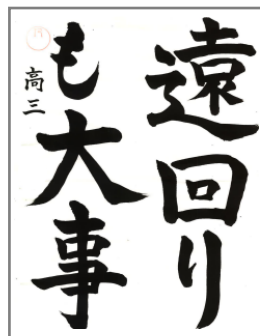 遠回り
も大事
高三